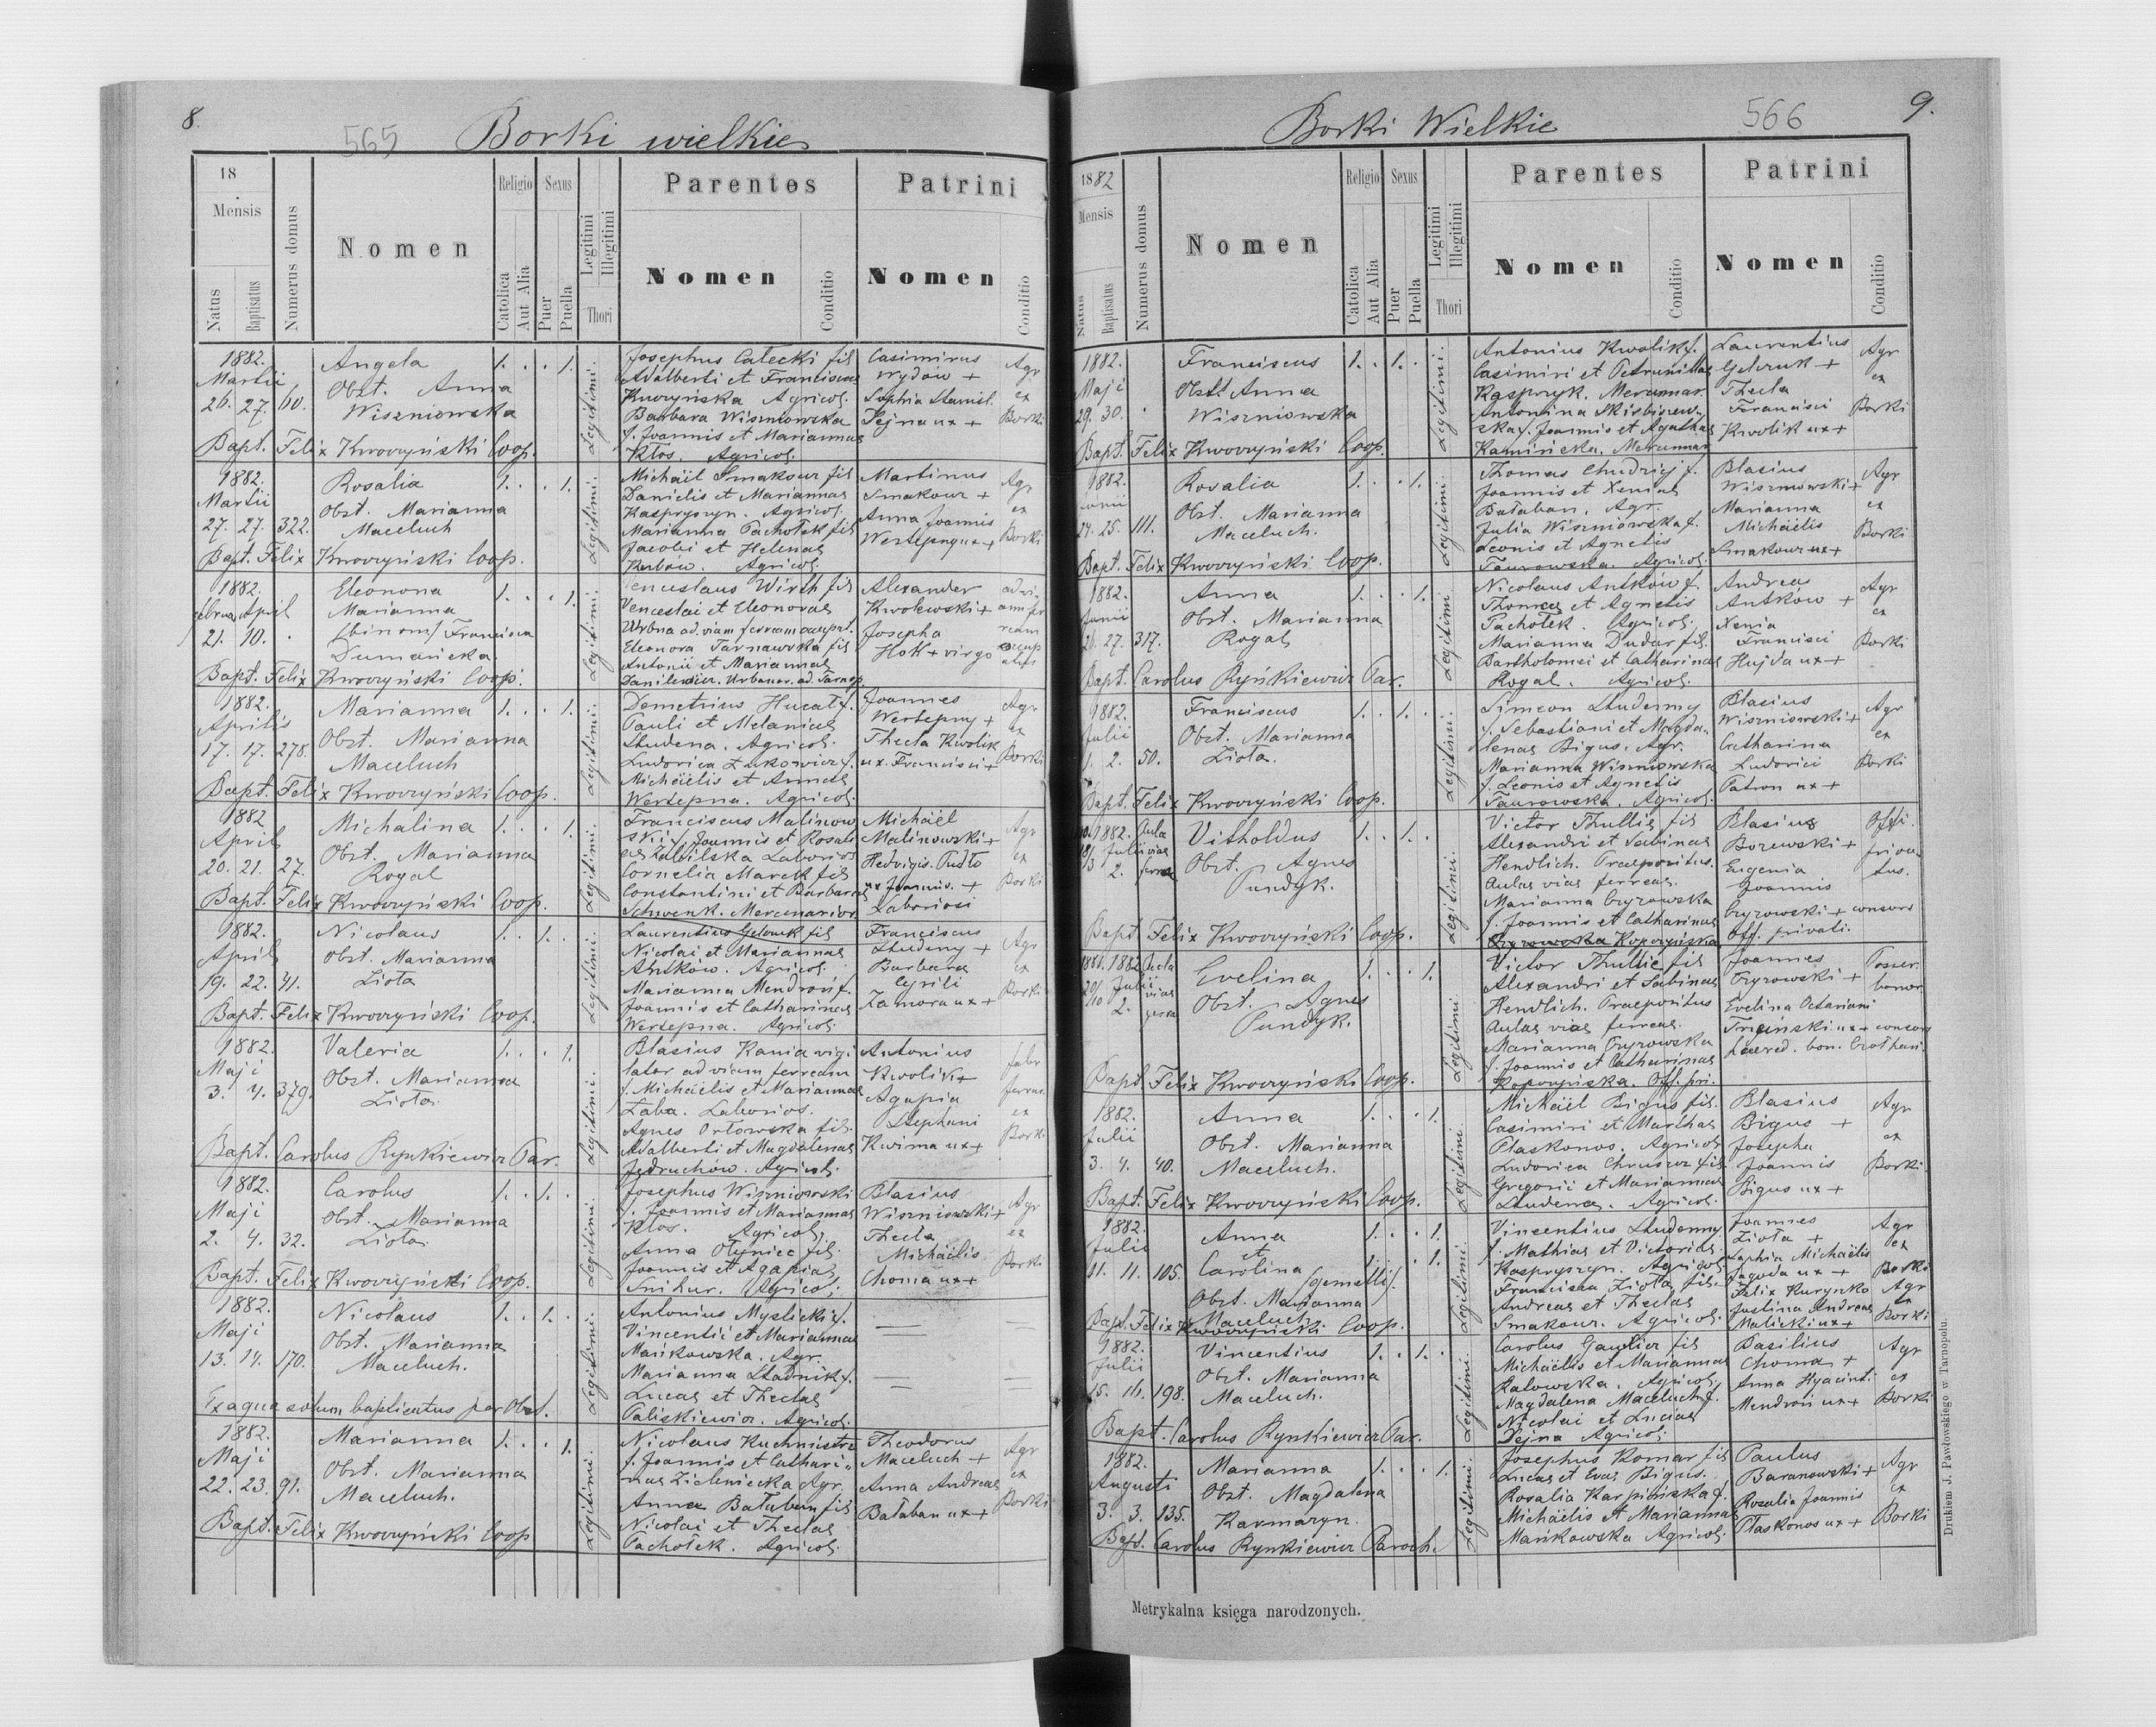 8.
565
Borki wielkie
18
Mensis
Natus
Baptisatus
Numerus domus
Nomen
Religio
Catolica
Aut Alia
Sexus
Puer
Puella
Legitimi
Illegitimi
Thori
Parentes
Nomen
Conditio
Patrini
Nomen
Conditio
1882.
Martii
26. 27. 60.
Angela
Obst. Anna
Wiszniowska
1. . . 1.
Legitimi.
Josephus Całecki fil
Adalberti et Franciscae
Agricol.
Barbara Wiszniowska
f. Joannis et Mariannae
Kłos. Agricol.
Casimirus
Wydów +
Sophia
Sejna ux +
Agr
ex
Borki
Bapt. Felix Kwoczyński Coop.
1882.
Martii
27. 27. 322.
Rosalia
Obst. Marianna
Maceluch
1. . . 1.
Legitimi.
Michaël Smakour fil
Danielis et Mariannae
Kaspryszyn. Agricol.
Marianna Pachołek fil
Jacobi et Helenae
Kubów. Agricol.
Martinus
Smakour +
Anna Joannis
Wertepny ux +
Agr
ex
Borki
Bapt. Felix Kwoczyński Coop.
1882.
April
21. 10. .
Eleonora
Marianna
(binom) Francisca
Dumańska.
1. . . 1.
Legitimi.
Venceslaus Wirth fil
Venceslai et Eleonorae
Urbna ad viam ferream occupat.
Eleonora Tarnawska fil
Antonii et Mariannae
Alexander
Kwolewski +
Josepha
Hok + virgo
Bapt. Felix Kwoczyński Coop.
1882.
Aprilis
17. 17. 278.
Marianna
Obst. Marianna
Maceluch
1. . . 1.
Legitimi.
Demetrius Hucał f.
Pauli et Melaniae
Studena. Agricol.
Ludovica Łukowicz f.
Michaëlis et Annae
Wertepna. Agricol.
Joannes
Wertepny +
Thecla Kwolik
ux. Francisci +
Agr
ex
Borki
Bapt. Felix Kwoczyński Coop.
1882
April
20. 21. 27.
Michalina
Obst. Marianna
Rogal
1. . . 1.
Legitimi.
Franciscus Malinow
ski f. Joannis et Rosali
Cornelia Marek fil
Constantini et Barbarae
Schwenk. Mercenarior.
Michaël
Malinowski +
Hedvigis. Pudło
ux Joannis. +
Laboriosi
Agr
ex
Borki
Bapt. Felix Kwoczyński Coop.
1882.
April
19. 22. 41.
Nicolaus
Obst. Marianna
Ziota
1. . 1. .
Legitimi.
Laurentius Gelowk fil
Nicolai et Mariannae
Antków. Agricol.
Marianna Mendroń f.
Joannis et Catharinae
Wertepna. Agricol.
Franciscus
Studeny +
Barbara
Cyrili
Zamora ux +
Agr
ex
Borki
Bapt. Felix Kwoczyński Coop.
1882.
Maji
3. 4. 379.
Valeria
Obst. Marianna
Ziota
1. . . 1.
Legitimi.
Blasius Kania vigi
lator ad viam ferream
f. Michaëlis et Mariannae
Żaba. Laborios.
Agnes Orłowska fil.
Adalberti et Magdalenae
Jędruchów. Agricol.
Antonius
Kwolik +
Agapia
Stephani
Kwirna ux +
ex
Borki
Bapt. Carolus Rynkiewicz Par.
1882.
Maji
2. 4. 32.
Carolus
Obst. Marianna
Ziota.
1. . 1. .
Legitimi.
Josephus Wiszniowski
f. Joannis et Mariannae
Kłos. Agricol.
Anna Olyniec fil.
Joannis et Agapiae
Snihur. Agricol.
Blasius
Wiszniowski +
Thecla
Michaëlis
Choma ux +
Agr
ex
Borki
Bapt. Felix Kwoczyński Coop.
1882.
Maji
13. 14. 170.
Nicolaus
Obst. Marianna
Maceluch.
1. . 1. .
Legitimi.
Antonius Myslicki f.
Vincentii et Mariannae
Mańkowska. Agr.
Marianna Stadnik f.
Lucae et Theclae
Paliskiewicz. Agricol.
Ex aqua solum baptisatus per Obst.
1882.
Maji
22. 23. 91.
Marianna
Obst. Marianna
Maceluch.
1. . . 1.
Legitimi.
Nicolaus Kuchmistrz
f. Joannis et Cathari-
nae Zieleniecka Agr.
Anna Bałaban fil
Nicolai et Theclae
Pachołek. Agricol.
Theodorus
Maceluch +
Anna Andreae
Bałaban ux +
Agr
ex
Borki
Bapt. Felix Kwoczyński Coop
9.
566
Borki Wielkie
1882
Mensis
Natus
Baptisatus
Numerus domus
Nomen
Religio
Catolica
Aut Alia
Sexus
Puer
Puella
Legitimi
Illegitimi
Thori
Parentes
Nomen
Conditio
Patrini
Nomen
Conditio
1882.
Maji
29. 30. .
Franciscus
Obst. Anna
Wiszniowska
1. . 1. .
Legitimi.
Antonius Kwolik f.
Casimiri et Petrunillae
Kaspryk. Mercenar.
Antonina
ska f. Joannis et Agathae
Kamińska. Mercenar
Laurentius
Gelowuk +
Thecla
Francisci
Kwolik ux +
Agr
ex
Borki
Bapt. Felix Kwoczyński Coop.
1882.
Junii
24. 25. 111.
Rosalia
Obst. Marianna
Maceluch.
1. . . 1.
Legitimi.
Thomas Chudzij f.
Joannis et Xeniae
Bałaban. Agr.
Julia Wiszniowska f.
Leonis et Agnetis
Taurowska. Agricol.
Blasius
Wiszniowski +
Marianna
Michaëlis
Smakour ux +
Agr
ex
Borki
Bapt. Felix Kwoczyński Coop.
1882.
Junii
26. 27. 317.
Anna
Obst. Marianna
Rogal
1. . . 1.
Legitimi
Nicolaus Antków f.
Thomae et Agnetis
Pachołek. Agricol.
Marianna Dudar fil.
Bartholomei et Catharinae
Rogal. Agricol.
Andreas
Antków +
Xenia
Francisci
Hujda ux +
Agr
ex
Borki
Bapt. Carolus Ryńkiewicz Par.
1882.
Julii
1. 2. 50.
Franciscus
Obst. Marianna
Ziota.
1. . 1. .
Legitimi.
Simeon Studenny
f. Sebastiani et Magda-
lenae Bigus. Agr.
Marianna Wiszniowska
f. Leonis et Agnetis
Taurowska. Agricol.
Blasius
Wiszniowski +
Catharina
Ludovici
Patron ux +
Agr
ex
Borki
Bapt. Felix Kwoczyński Coop.
1882.
Julii
2.
Aula
viae
ferreae
Vitholdus
Obst. Agnes
Pundyk.
1. . 1. .
Legitimi.
Victor Thullie fil
Alexandri et Sabinae
Hendlich. Praepositus.
Aulae viae ferreae.
Marianna Cryrowska
f. Joannis et Catharinae
Kopczyńska
Blasius
Borewski +
Eugenia
Joannis
Cryrowski + consors
Off. privati.
Offi.
priva
tus.
Bapt Felix Kwoczyński Coop.
1881. 1882
20/10
Julii
2.
Evelina
Obst. Agnes
Pundyk.
1. . . 1.
Legitimi
Victor Thullie fil
Alexandri et Sabinae
Hendlich. Praepositus
Aulae viae ferreae.
Marianna Cryrowska
f. Joannis et Catharinae
Kopczyńska. Off. pri.
Joannes
Cryrowski +
Evelina Octaviani
ux + consors
haered. bon.
Posses.
bonor.
Bapt. Felix Kwoczyński Coop.
1882.
Julii
3. 4. 40.
Anna
Obst. Marianna
Maceluch.
1. . . 1.
Legitimi.
Michaël Bigus fil.
Casimiri et Marthae
Płaskonos. Agricol.
Ludovica Chruszcz fil
Gregorii et Mariannae
Studena. Agricol.
Blasius
Bigus +
Josepha
Joannis
Bigus ux +
Agr
ex
Borki
Bapt. Felix Kwoczyński Coop.
1882.
Julii
11. 11. 105.
Anna
et
Carolina
(gemelli).
Obst. Marianna
Maceluch
1. . . 1.
1. . . 1.
Legitimi.
Vincentius Studenny
f. Mathiae et Victoriae
Kaspryszyn. Agricol.
Francisca Ziota fil.
Andreae et Theclae
Smakour. Agricol.
Joannes
Ziota +
Sophia Michaëlis
Jagoda ux +
Felix Kurynko
Justina Andreae
Malicki ux +
Agr
ex
Borki
Agr
ex
Borki
Bapt. Felix Kwoczyński Coop.
1882.
Julii
15. 16. 198.
Vincentius
Obst. Marianna
Maceluch.
1. . 1. .
Legitimi.
Carolus Gawlicz fil
Michaëlis et Mariannae
Ratowska. Agricol.
Magdalena Maceluch f.
Nicolai et Luciae
Sejna Agricol.
Basilius
Choma +
Anna Hyacinti
Mendroń ux +
Agr
ex
Borki
Bapt. Carolus Rynkiewicz Par.
1882.
Augusti
3. 3. 135.
Marianna
Obst. Magdalena
Karmazyn.
1. . . 1.
Legitimi.
Josephus Komar fil
Lucae et Evae Bigus.
Rosalia Karpińska f.
Michaëlis et Mariannae
Mańkowska Agricol.
Paulus
Baranowski +
Rosalia Joannis
Płaskonos ux +
Agr
ex
Borki
Bapt. Carolus Rynkiewicz Paroch.
Metrykalna księga narodzonych.
Drukiem J. Pawłowskiego w Tarnopolu.